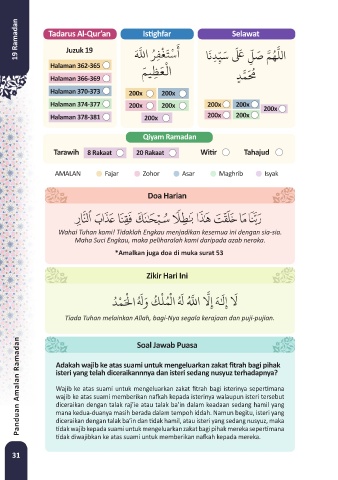 19 Ramadan
Tadarus Al-Qur'an
Istighfar
Selawat
Juzuk 19
Halaman 362-365
Halaman 366-369
Halaman 370-373
Halaman 374-377
Halaman 378-381
أَسْتَغْفِرُ اللَّهَ
الْعَظِيمَ
200x 200x
200x 200x
200x
اللَّهُمَّ صَلِّ عَلَى سَيِّدِنَا
مُحَمَّدٍ
200x 200x
200x 200x
200x
Qiyam Ramadan
Tarawih 8 Rakaat 20 Rakaat Witir Tahajud
AMALAN Fajar Zohor Asar Maghrib Isyak
Doa Harian
رَبَّنَا مَا خَلَقْتَ هَذَا بَاطِلًا سُبْحَانَكَ فَقِنَا عَذَابَ النَّارِ
Wahai Tuhan kami! Tidaklah Engkau menjadikan kesemua ini dengan sia-sia.
Maha Suci Engkau, maka peliharalah kami daripada azab neraka.
*Amalkan juga doa di muka surat 53
Zikir Hari Ini
لَا إِلَهَ إِلَّا اللَّهُ لَهُ الْمُلْكُ وَلَهُ الْحَمْدُ
Tiada Tuhan melainkan Allah, bagi-Nya segala kerajaan dan puji-pujian.
Soal Jawab Puasa
Adakah wajib ke atas suami untuk mengeluarkan zakat fitrah bagi pihak
isteri yang telah diceraikannnya dan isteri sedang nusyuz terhadapnya?
Wajib ke atas suami untuk mengeluarkan zakat fitrah bagi isterinya sepertimana
wajib ke atas suami memberikan nafkah kepada isterinya walaupun isteri tersebut
diceraikan dengan talak raj'ie atau talak ba'in dalam keadaan sedang hamil yang
mana kedua-duanya masih berada dalam tempoh iddah. Namun begitu, isteri yang
diceraikan dengan talak ba'in dan tidak hamil, atau isteri yang sedang nusyuz, maka
tidak wajib kepada suami untuk mengeluarkan zakat bagi pihak mereka sepertimana
tidak diwajibkan ke atas suami untuk memberikan nafkah kepada mereka.
Panduan Amalan Ramadan
31